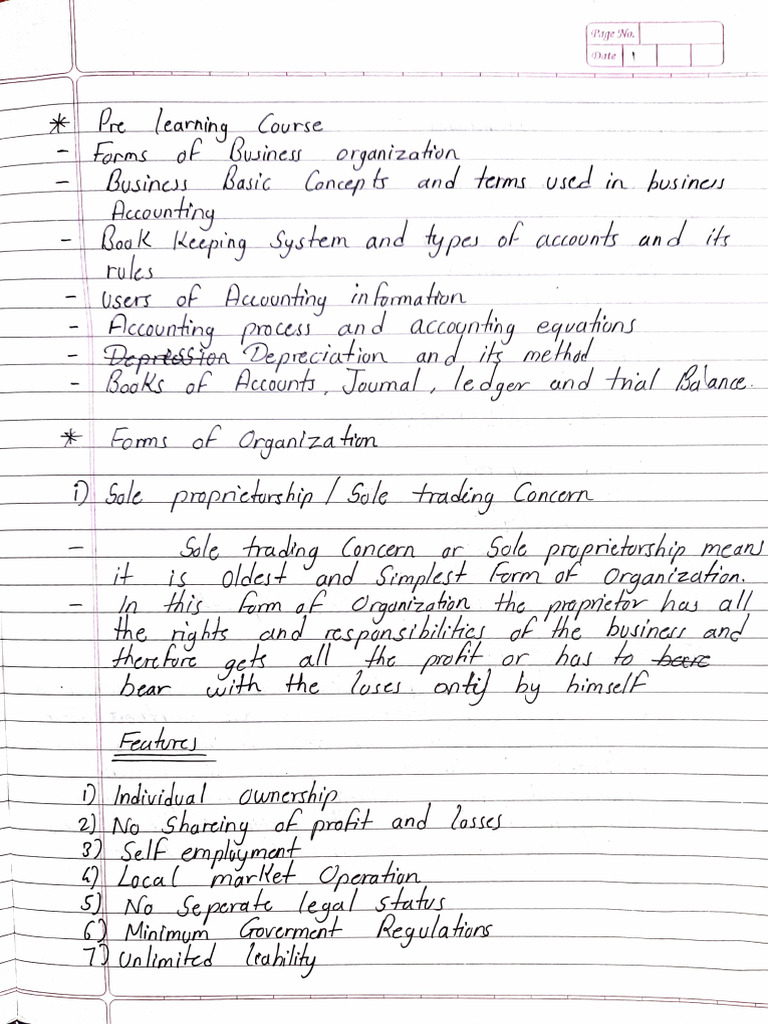 Page No.
Date
* Pre learning Course
- Forms of Business organization
- Business Basic Concepts and terms used in business
Accounting
- Book Keeping System and types of accounts and its
rules
- Users of Accounting information
- Accounting process and accounting equations
- Depression Depreciation and its method
- Books of Accounts, Journal, ledger and trial Balance.
* Forms of Organization
i) Sole proprietorship / Sole trading Concern
- Sole trading Concern or Sole proprietorship means
it is Oldest and Simplest Form of Organization.
- In this form of Organization the proprietor has all
the rights and responsibilities of the business and
therefore gets all the profit or has to
bear with the loses by himself
Features
1) Individual ownership
2) No Shareing of profit and losses
3) Self employment
4) Local market Operation
5) No Seperate legal status
6) Minimum Goverment Regulations
7) Unlimited leability